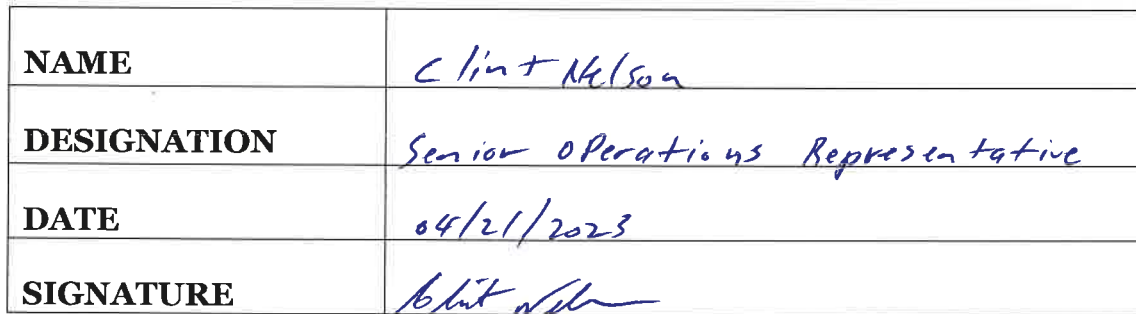 NAME Clint Nelson
DESIGNATION Senior Operations Representative
DATE 04/21/2023
SIGNATURE Clint Nelson